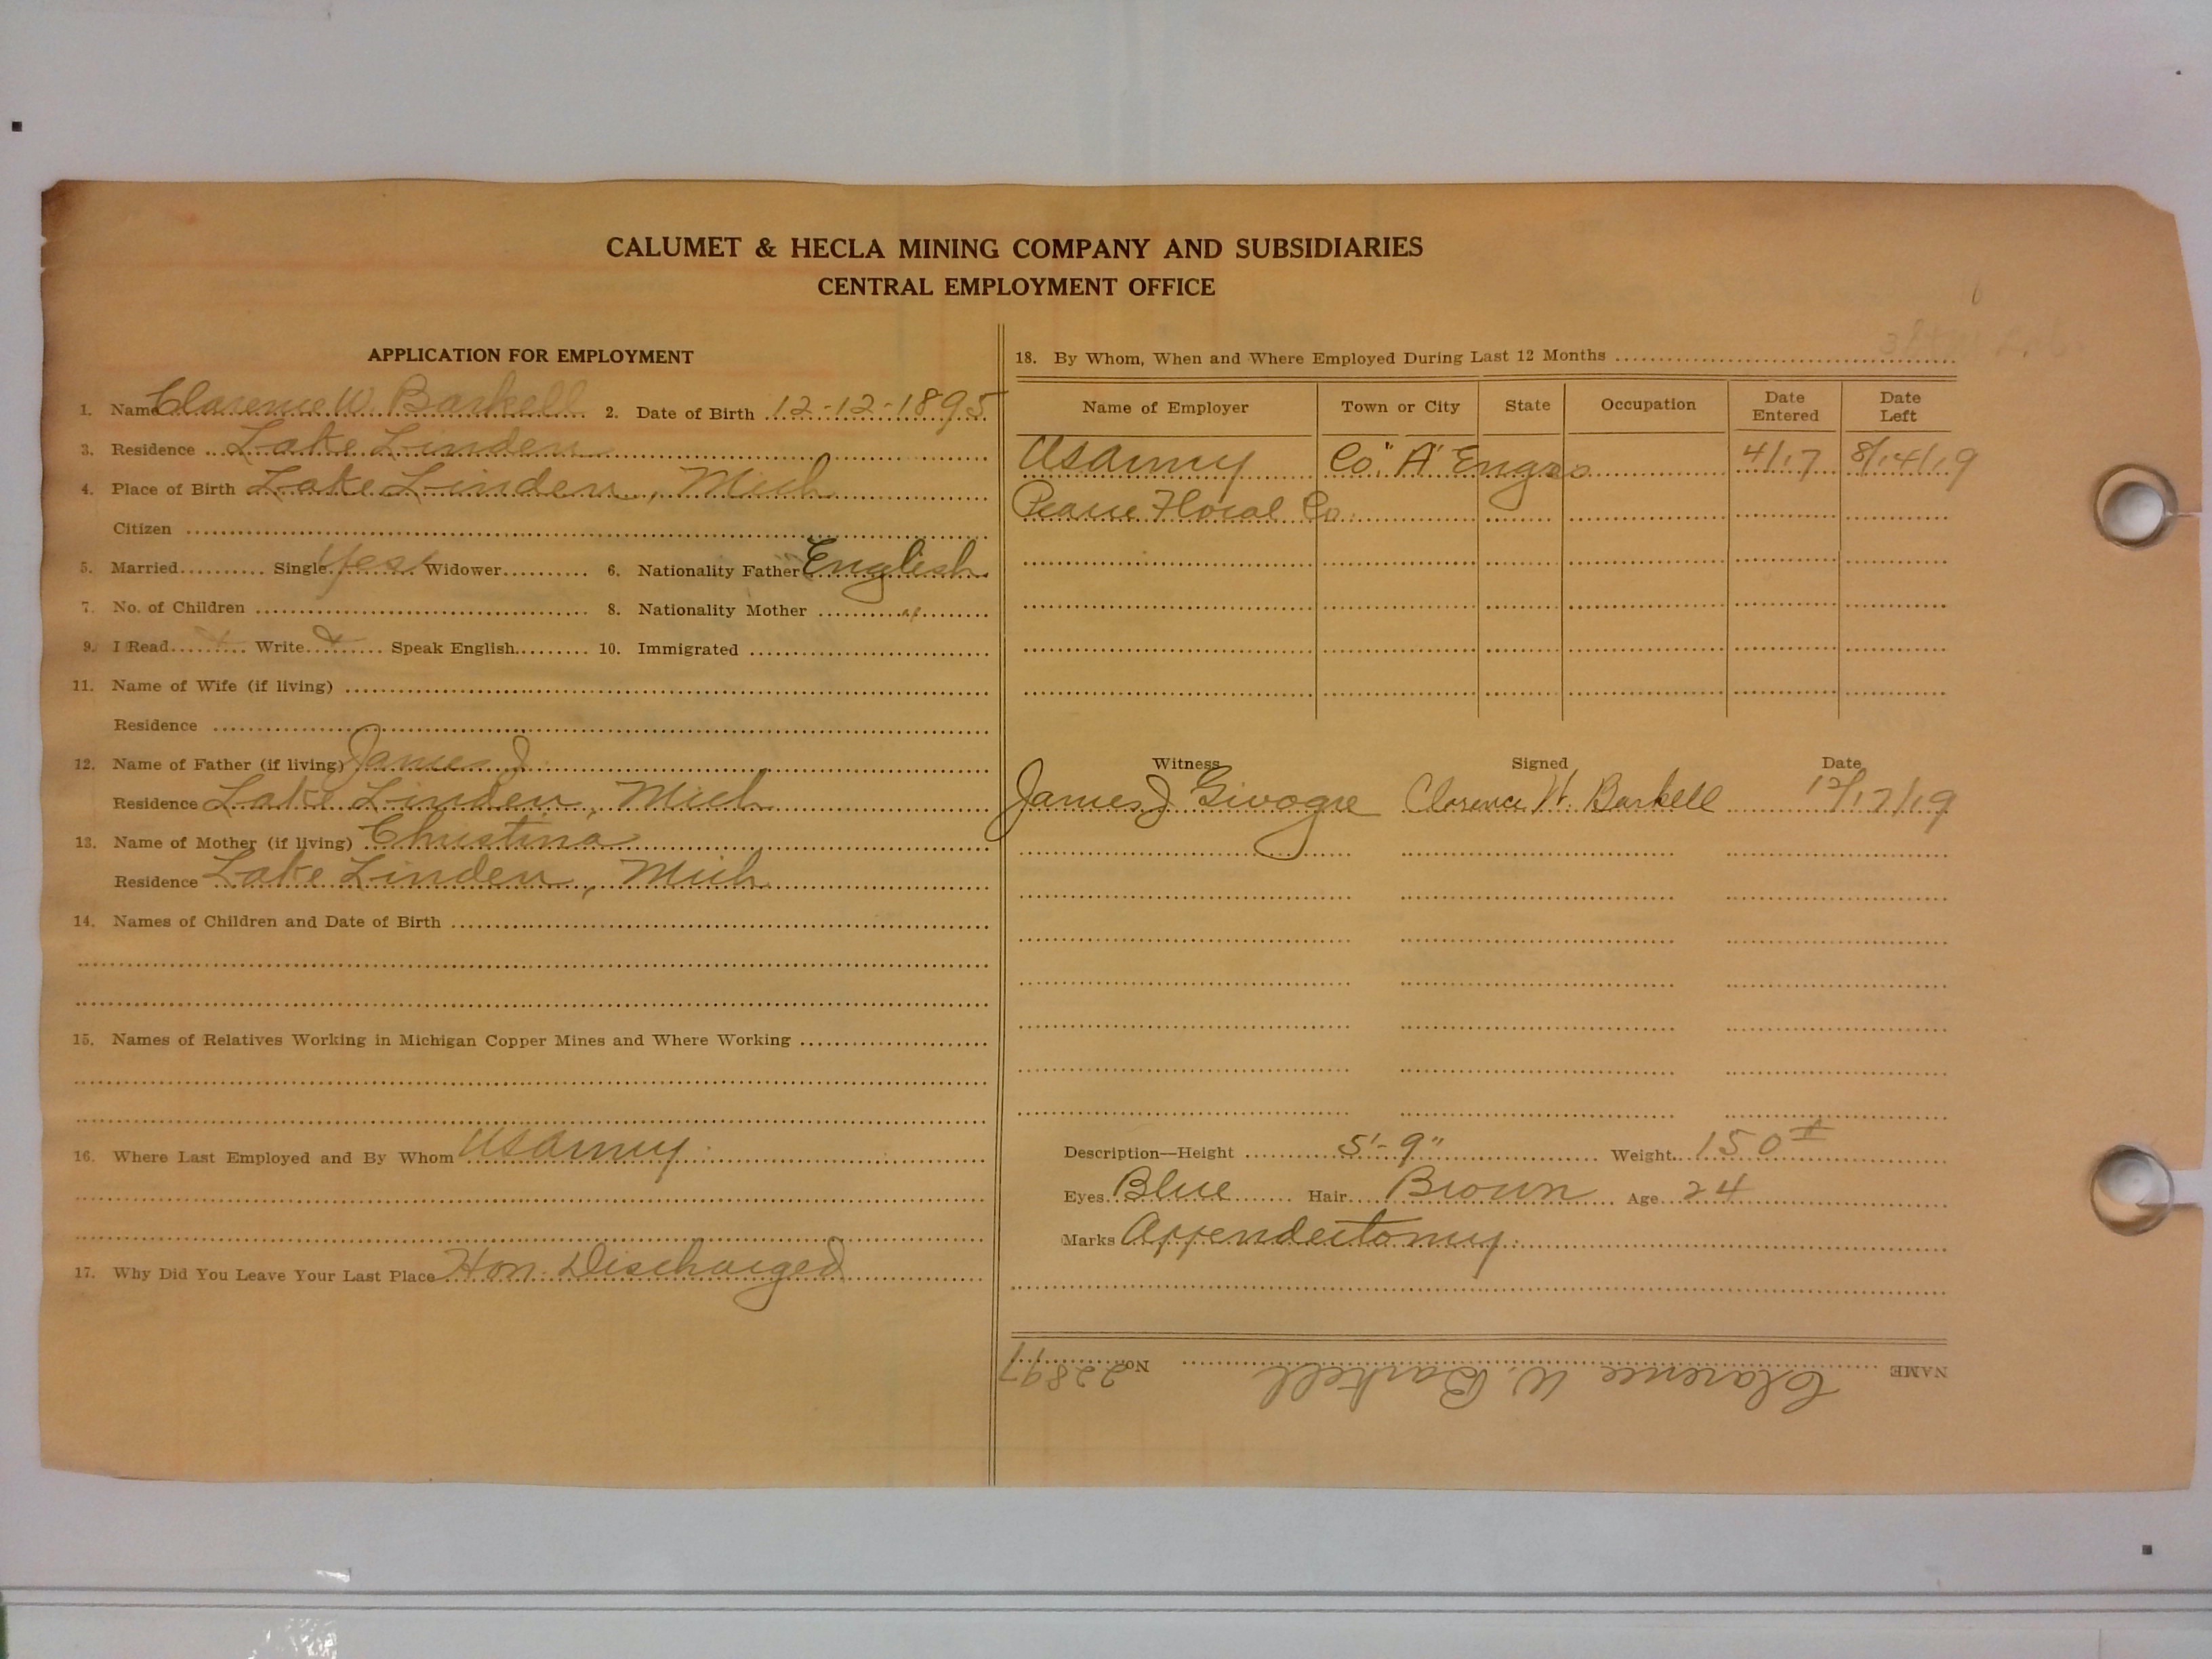 CALUMET & HECLA MINING COMPANY AND SUBSIDIARIES
CENTRAL EMPLOYMENT OFFICE
APPLICATION FOR EMPLOYMENT
1. Name Clarence W. Barkell 2. Date of Birth 12-12-1895
3. Residence Lake Linden
4. Place of Birth Lake Linden, Mich
Citizen
5. Married Single Yes Widower 6. Nationality Father English
7. No. of Children 8. Nationality Mother "
9. I Read Write Speak English 10. Immigrated
11. Name of Wife (if living)
Residence
12. Name of Father (if living) James J
Residence Lake Linden, Mich
13. Name of Mother (if living) Christina
Residence Lake Linden, Mich
14. Names of Children and Date of Birth
15. Names of Relatives Working in Michigan Copper Mines and Where Working
16. Where Last Employed and By Whom US Army
17. Why Did You Leave Your Last Place Hon. Discharged
18. By Whom, When and Where Employed During Last 12 Months
Name of Employer Town or City State Occupation Date Entered Date Left
US Army Co "A" Engrs 4/17 8/14/19
Floral Co.
Witness Signed Date
James J Clarence W. Barkell 12/17/19
Description—Height 5'-9" Weight 150
Eyes Blue Hair Brown Age 24
Marks Appendectomy
NAME Clarence W. Barkell No. 22897